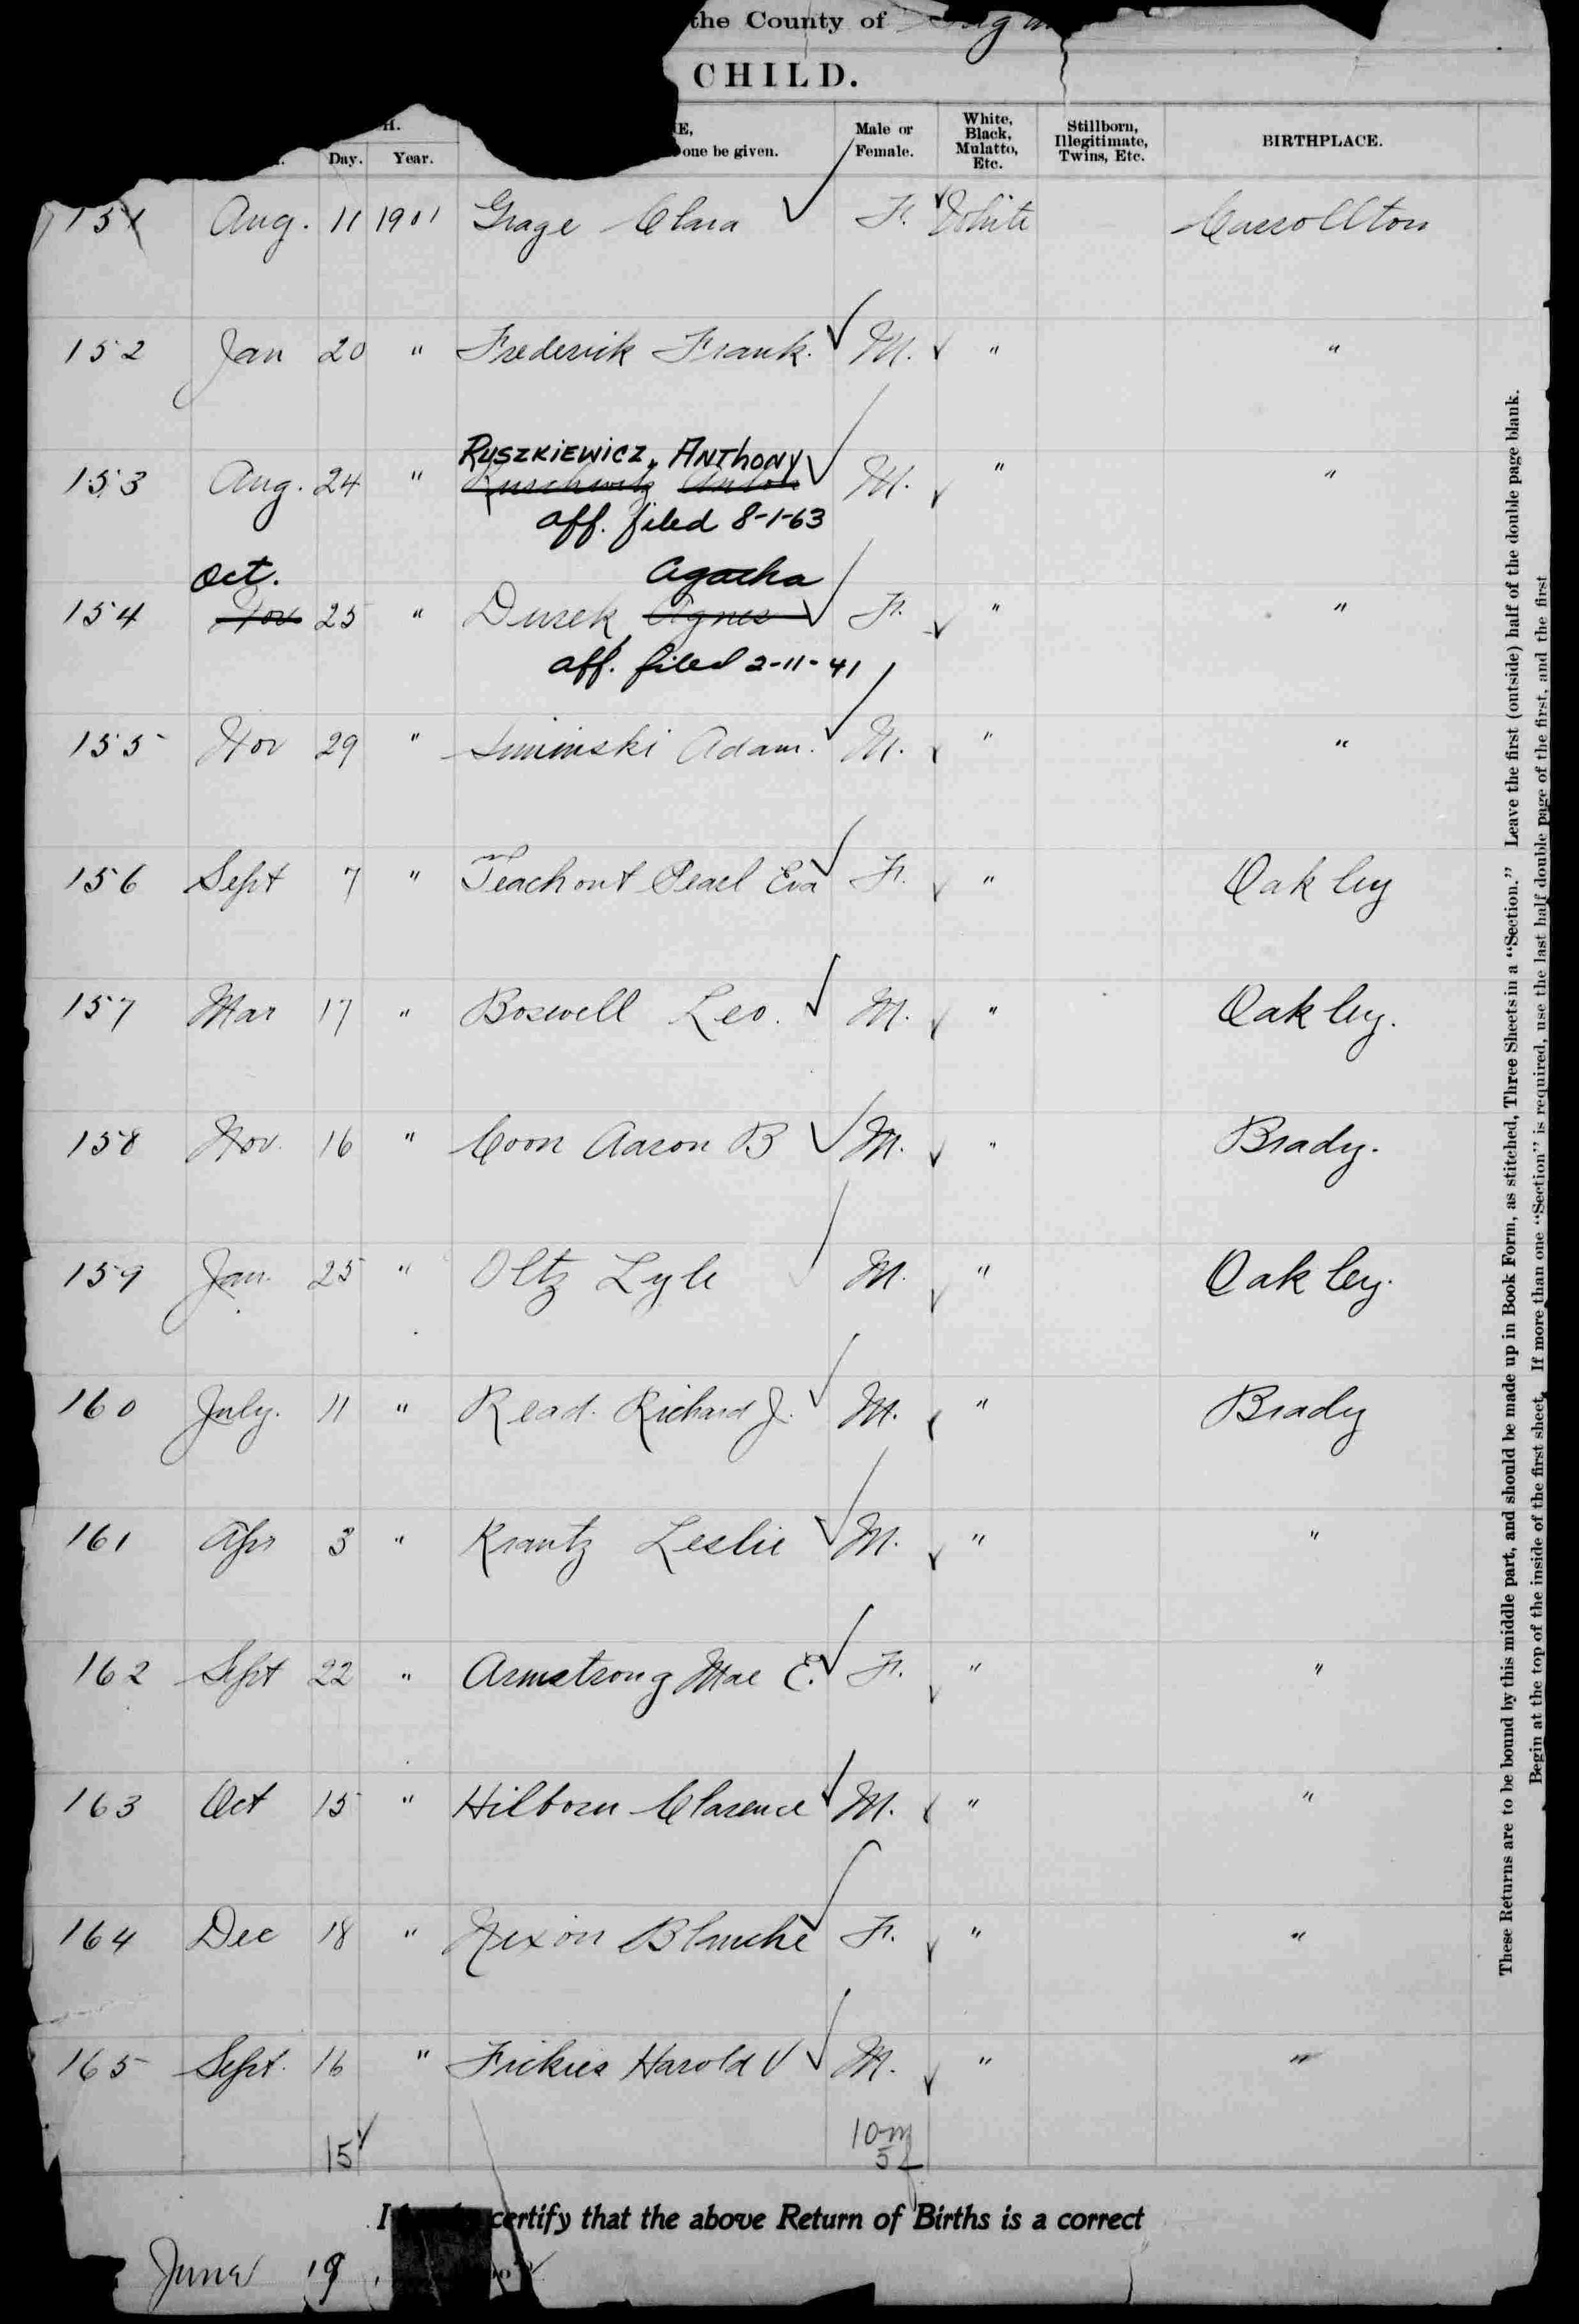 the County of
CHILD.
H. E, Male or White, Stillborn, BIRTHPLACE.
Day. Year. one be given. Female. Black, Mulatto, Etc. Illegitimate, Twins, Etc.
151 Aug. 11 1901 Grage Clara F. White Carrollton
152 Jan 20 " Frederick Frank. M. " "
RUSZKIEWICZ, ANTHONY
153 Aug. 24 " Anton M. " "
aff. filed 8-1-63
Oct. Agatha
154 Nov 25 " Durek Agnes F. " "
aff. filed 2-11-41
155 Nov 29 " Adam. M. " "
156 Sept 7 " Teachout Pearl Eva F. " Oakley
157 Mar 17 " Boswell Leo. M. " Oakley.
158 Nov. 16 " Coon Aaron B M. " Brady.
159 Jan. 25 " Oltz Lyle M. " Oakley.
160 July. 11 " Read. Richard J. M. " Brady
161 Apr 3 " Krantz Leslie M. " "
162 Sept 22 " Armstrong Mae E. F. " "
163 Oct 15 " Hilborn Clarence M. " "
164 Dec 18 " Nixon Blanche F. " "
165 Sept. 16 " Harold V M. " "
15 10 m
5 f
I certify that the above Return of Births is a correct
June 19,
These Returns are to be bound by this middle part, and should be made up in Book Form, as stitched, Three Sheets in a "Section." Leave the first (outside) half of the double page blank.
Begin at the top of the inside of the first sheet. If more than one "Section" is required, use the last half double page of the first, and the first